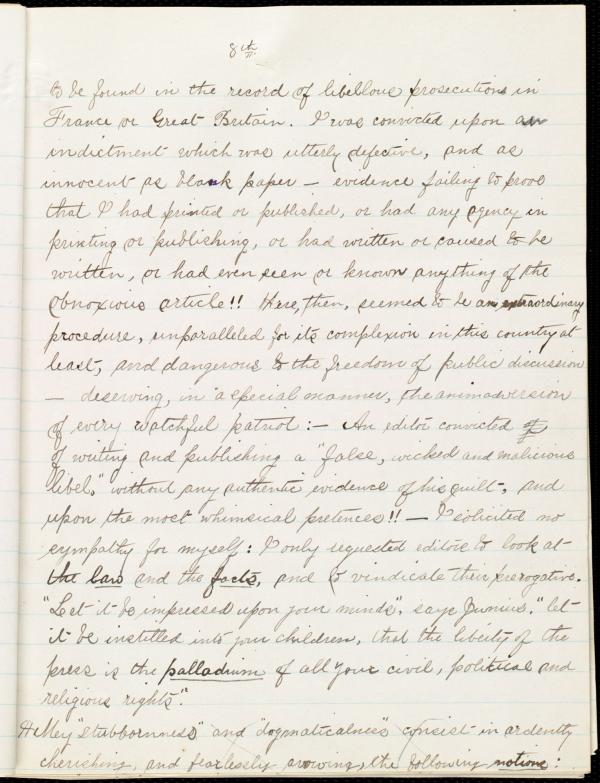 8th
to be found in the record of libellous prosecutions in
France or Great Britain. I was convicted upon an
indictment which was utterly defective, and as
innocent as blank paper — evidence failing to prove
that I had printed or published, or had any agency in
printing or publishing, or had written or caused to be
written, or had even seen or known anything of the
obnoxious article!! Here, then, seemed to be an extraordinary
procedure, unparalleled for its complexion in this country at
least, and dangerous to the freedom of public discussion
— deserving, in a special manner, the animadversion
of every watchful patriot: — An editor convicted of
of writing and publishing a "false, wicked and malicious
libel," without any authentic evidence of his guilt, and
upon the most whimsical pretences!! — I solicited no
sympathy for myself: I only requested editors to look at
the law and the facts, and to vindicate their prerogative.
"Let it be impressed upon your minds", says Junius, "let
it be instilled into your children, that the liberty of the
press is the palladium of all your civil, political and
religious rights".
My "stubbornness" and "dogmaticalness" consist in ardently
cherishing, and fearlessly avowing, the following notions: